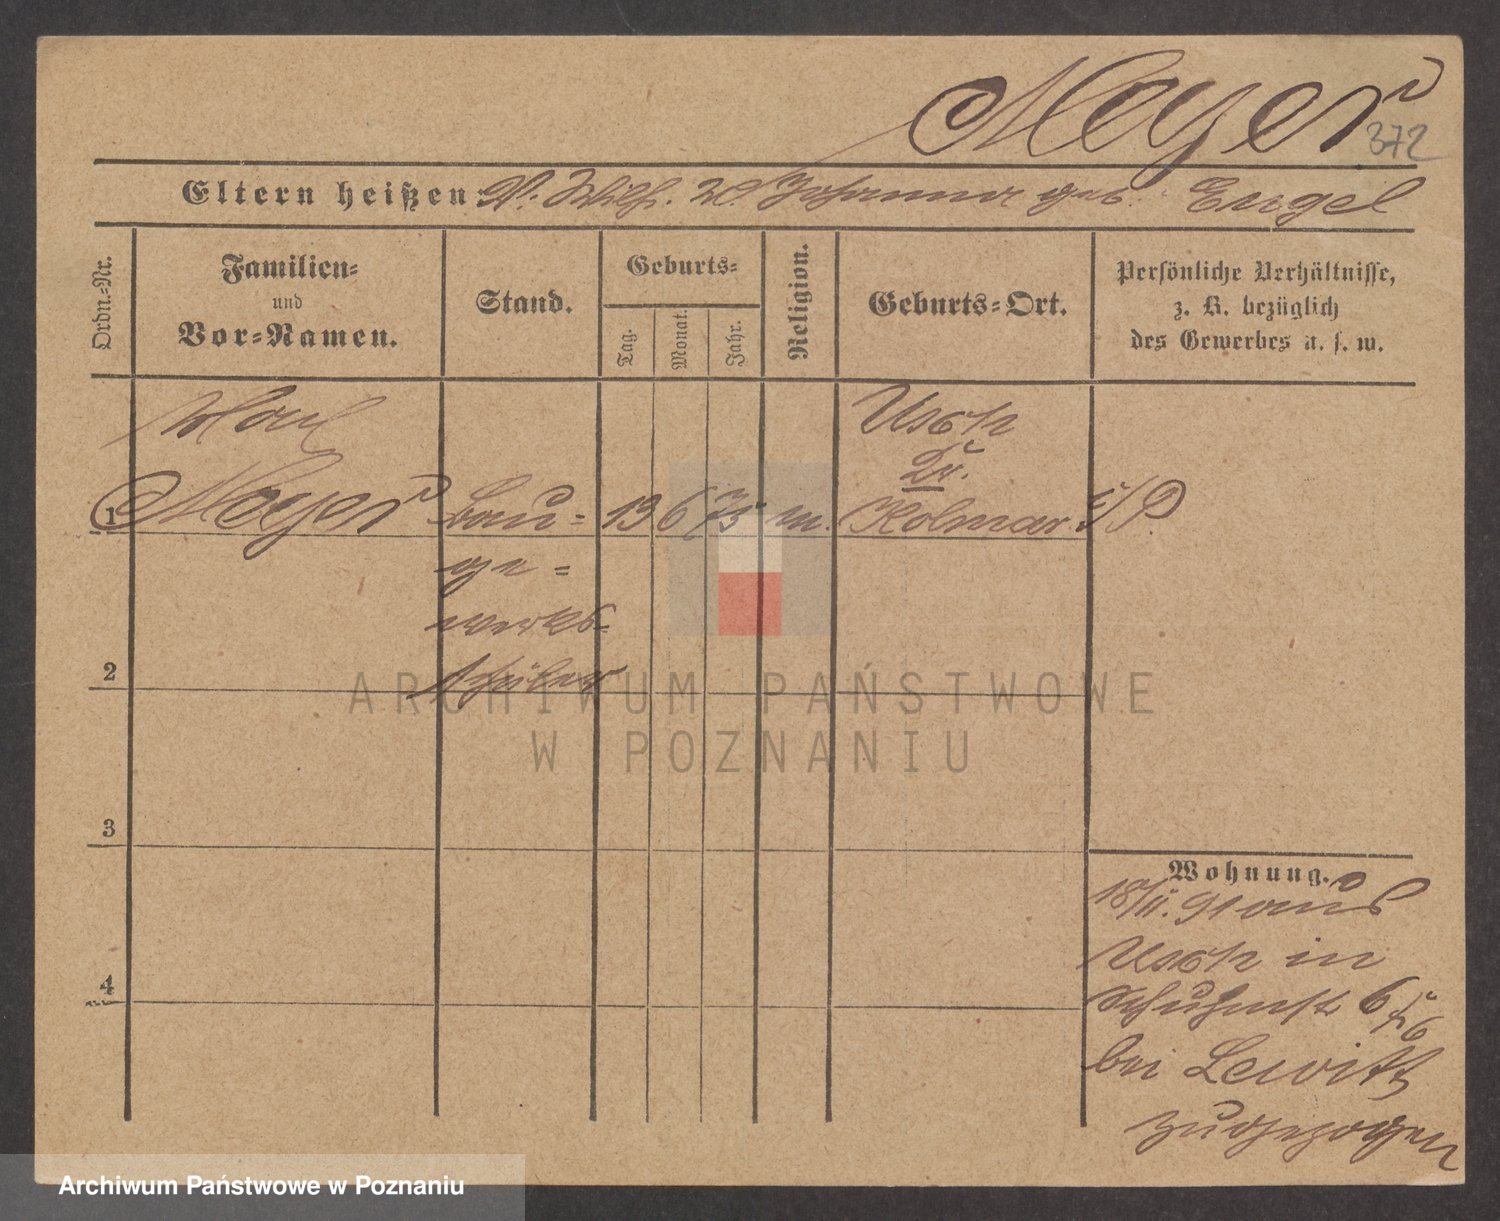 Meyer
372
Eltern heißen: V. Wilh. M. Johanna geb. Engel
Ordn.-Nr.
Familien-
und
Vor-Namen.
Stand.
Geburts-
Tag.
Monat.
Jahr.
Religion.
Geburts-Ort.
Persönliche Verhältnisse,
z. B. bezüglich
des Gewerbes u. s. w.
Usch
Kr.
1 Meyer Bau- 13 6 75 Kolmar i/P
ge-
werks-
schüler
2
3
4
Wohnung.
18/11. 91 aus
Usch in
6
bei Lewitt
zugezogen
ARCHIWUM PAŃSTWOWE
W POZNANIU
Archiwum Państwowe w Poznaniu